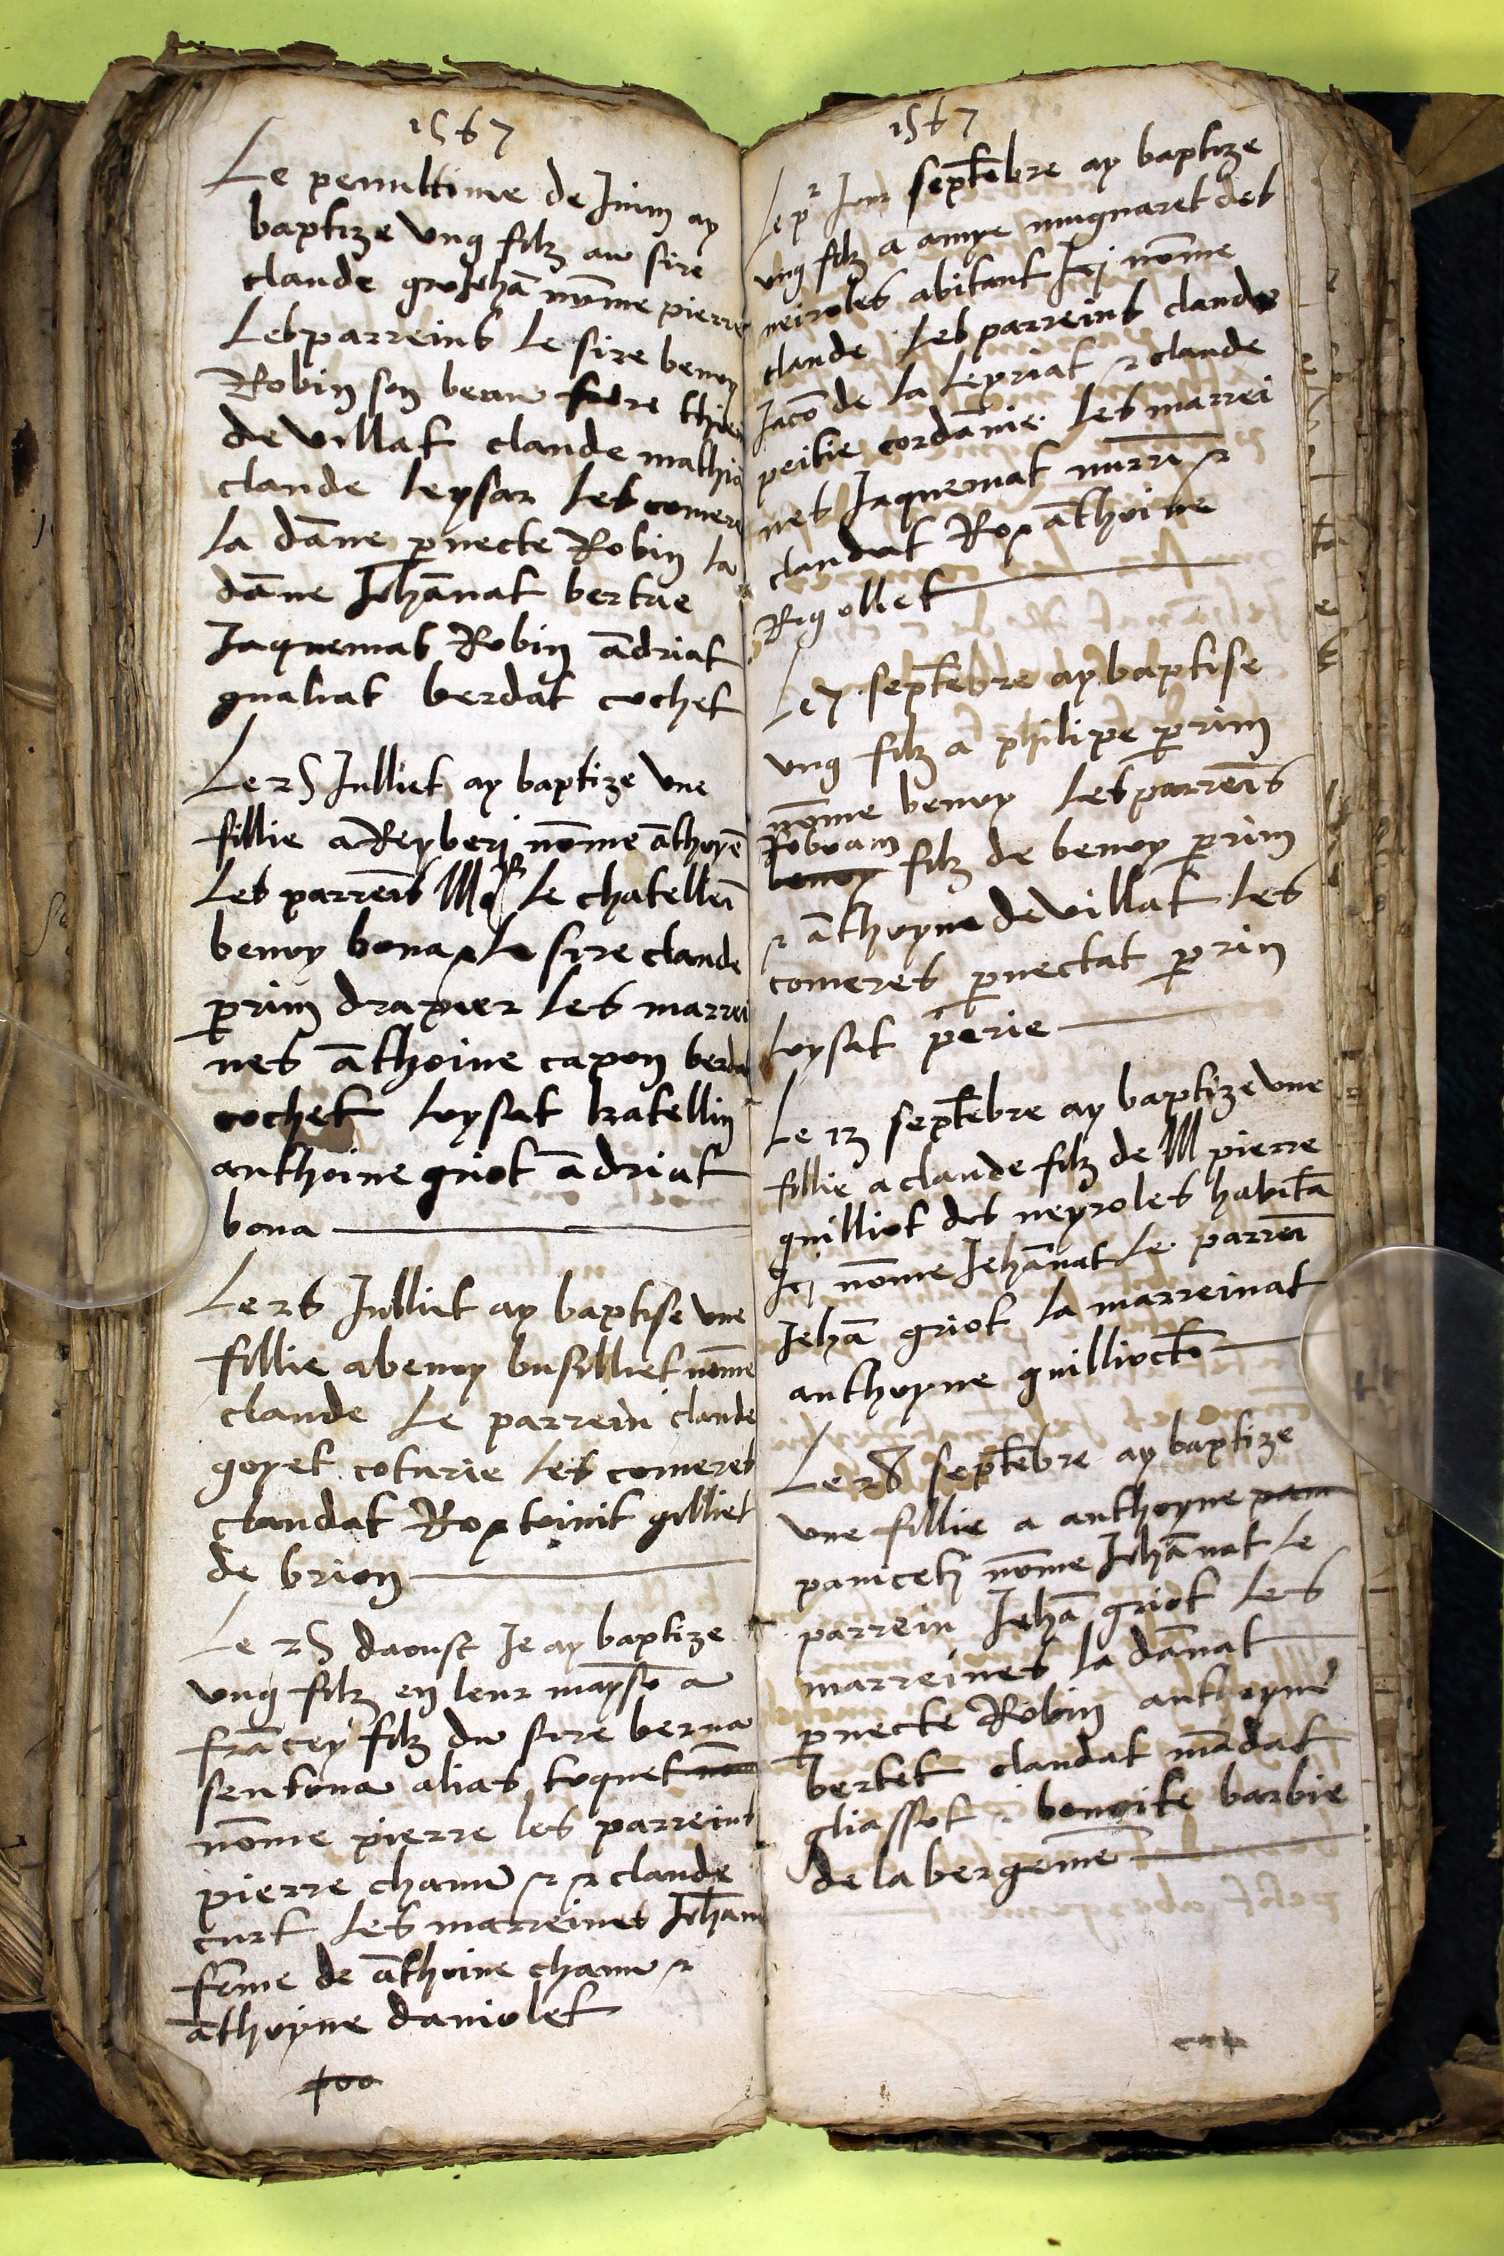 1567
Le penultime de Juin ay
baptize ung filz au sire
claude groJehã nõme pierre
Les parreins Le sire benoy
Robin son beau frere
de villat claude mathi
claude leysar Les comer
La dãme pnecte Robin la
dãme Jehãnat bertae
Jaquemas Robin ãdriat
gnaliat berdat cochet
Le 25 Julliet ay baptize une
fillie a Reyberj nõme ãthoyẽ
Les parreĩs Le chatelleĩ
benoy bona & Le sire claude
prim drapier Les marrei
nes ãthoine capon berda
cochet loysat katellin
anthoine griot ãdriat
bona
Le 26 Julliet ay baptise une
fillie a benoy busilliet nõme
claude Le parrein claude
goyet coturie Les comeres
claudat Rox toinit gilliet
de brion
Le 25 daoust Je ay baptize
ung filz en leur maysõ a
frãcey filz du sire berna
sentona alias toquet
nõme pierre les parreins
pierre chanu & claude
curt Les marreines Jehan
fẽme de ãthoine chanu &
ãthoyne daniolet
1567
Le pr Jour septẽbre ay baptize
ung filz a amye mugnaret des
neiroles abitant Jcj nõme
claude Les parreins claude
Jacõ de la Leyriat & claude
peitie cordãnie. Les marrei
nes Jaquemat nurri &
claudat Rox ãthoine
Rigollet
Le 7 septẽbre ay baptise
ung filz a philipe prim
nõme benoy Les parreĩs
Jobvam
benoy filz de benoy prim
& ãthoyne de villat Les
comeres pnectat prin
loysat perie
Le 13 septẽbre ay baptize une
fillie a claude filz de M pierre
guilliot des neyroles habitã
Jcj nõme Jehãnat Le parreĩ
Jehã griot La marreinat
anthoyne guillioctõ
Le 28 septẽbre ay baptize
une fillie a anthoyne pam
panicetj nõme Jehãnat Le
parrein Jehã griot Les
marreines la dãnat
pnecte Robin anthoyne
bertet claudat mãdat
gliassot benoite barbie
de la bergeme